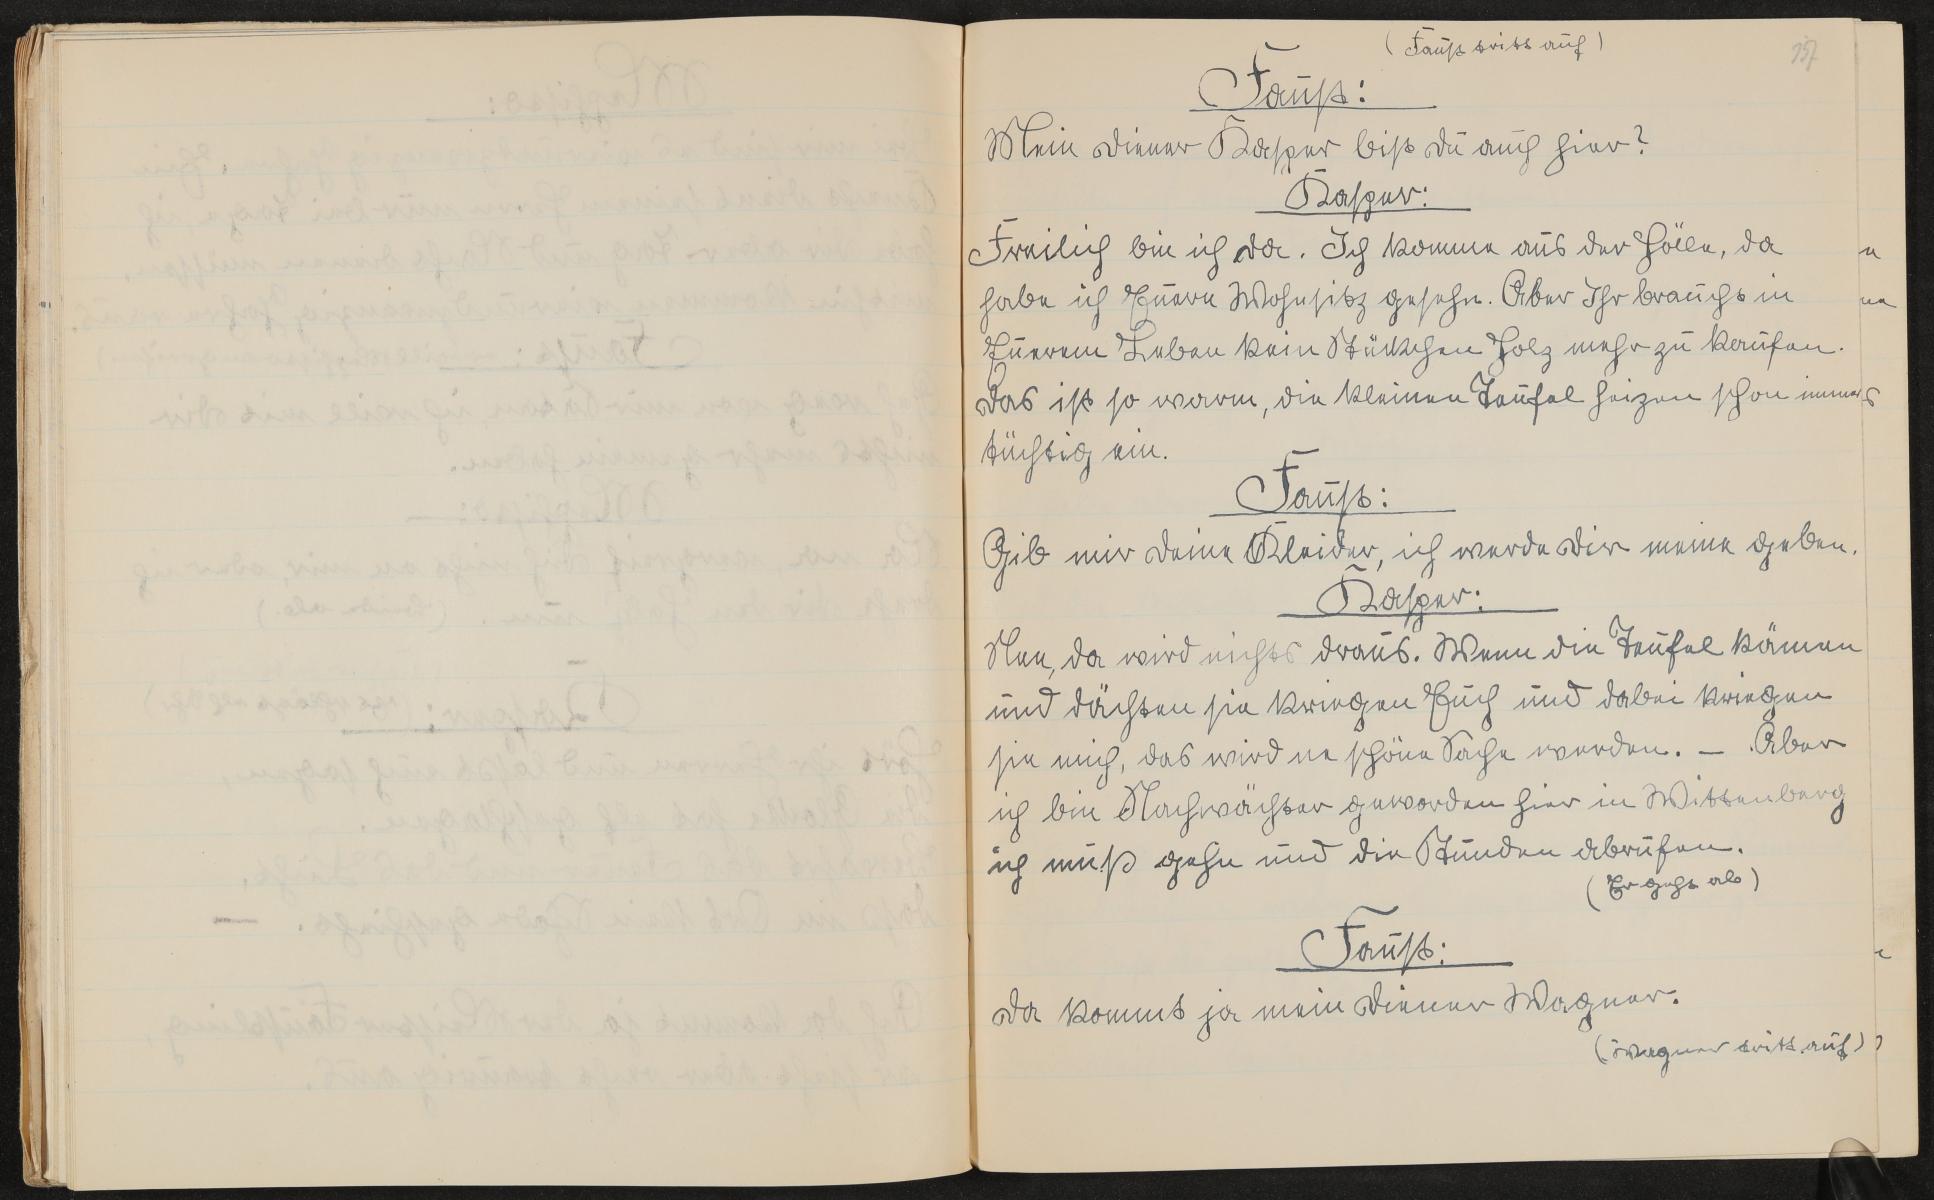 (Faust tritt auf)
157
Faust:
Mein Diener Kasper bist du auch hier?
Kasper:
Freilich bin ich da. Ich komme aus der Hölle, da
habe ich Euern Wohnsitz gesehn. Aber Ihr braucht in
Euerem Leben kein Stückchen Holz mehr zu kaufen.
Das ist so warm, die kleinen Teufel heizen schon immer
tüchtig ein.
Faust:
Gib mir deine Kleider, ich werde Dir meine geben.
Kasper:
Nee, da wird nichts draus. Wenn die Teufel kämen
und dächten sie kriegen Euch und dabei kriegen
sie mich, das wird ne schöne Sache werden. – Aber
ich bin Nachwächter geworden hier in Wittenberg
ich muß gehn und die Stunden abrufen.
(Er geht ab)
Faust:
Da kommt ja mein Diener Wagner.
(Wagner tritt auf)